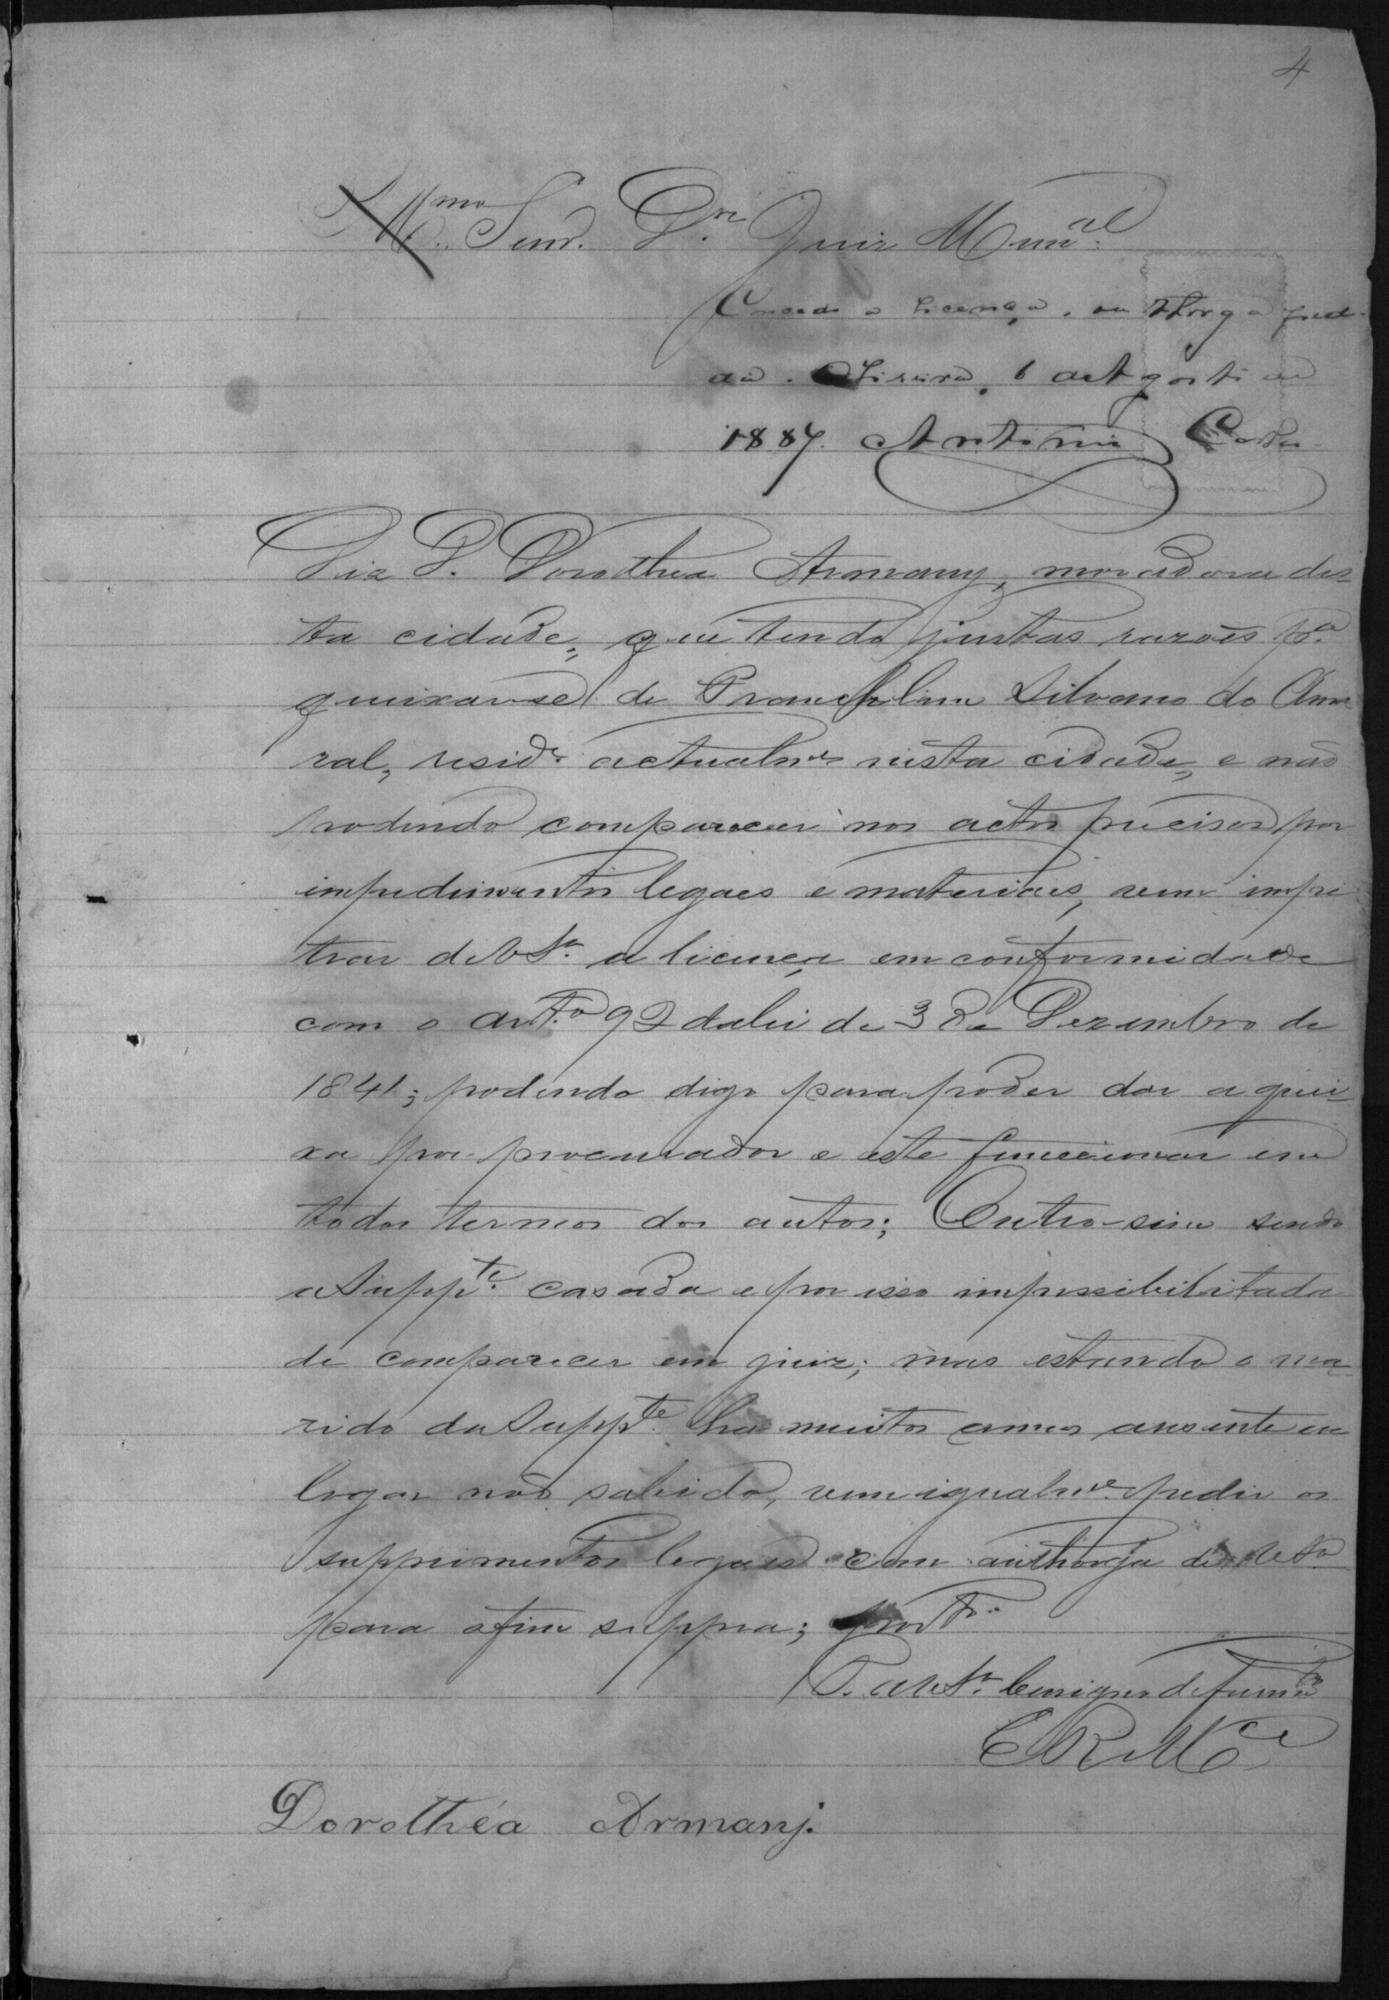 4
Illmo Senr. Dor Juiz Munal.
Concedo a licença, ou thorga pedi-
da. 6 de Agosto de
1887. Antonio
Diz D. Dorothea Armany, moradora des-
ta cidade, que tendo justas razões pa.
queixar-se de Francklim Silvano do Ama-
ral, reside actualmte nésta cidade, e não
podendo comparecer nos actos precisos por
impedimentos legaes e materiaes, vem impe
trar de VSa. a licença em conformidade
com o arto. 92 da lei de 3 de Dezembro de
1841; podendo digo para poder dar a quei-
xa por procurador e este funccionar em
todos termos dos autos; Outro-sim sendo
a Suppte. casada e por isso impossibilitada
de comparecer em juiz; mas estando o ma-
rido da Suppte. ha muitos annos ausente em
logar não sabido, vem igualme. pedir os
supprimentos legaes com authorga de VSa.
para o fim suppra; porto.
P. a VSa. benigno deferimto
E R Mce
Dorothéa Armanj.